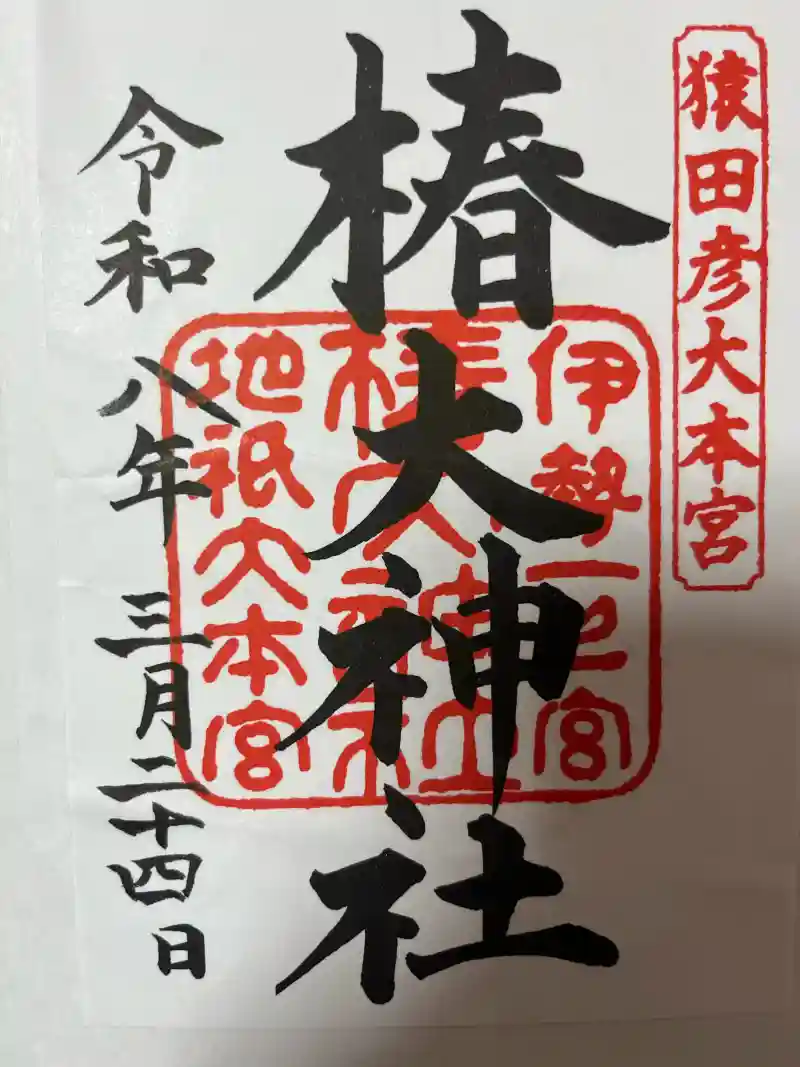 猿田彦大本宮
椿大神社
伊勢一之宮
椿大神社
地祇大本宮
令和八年三月二十四日